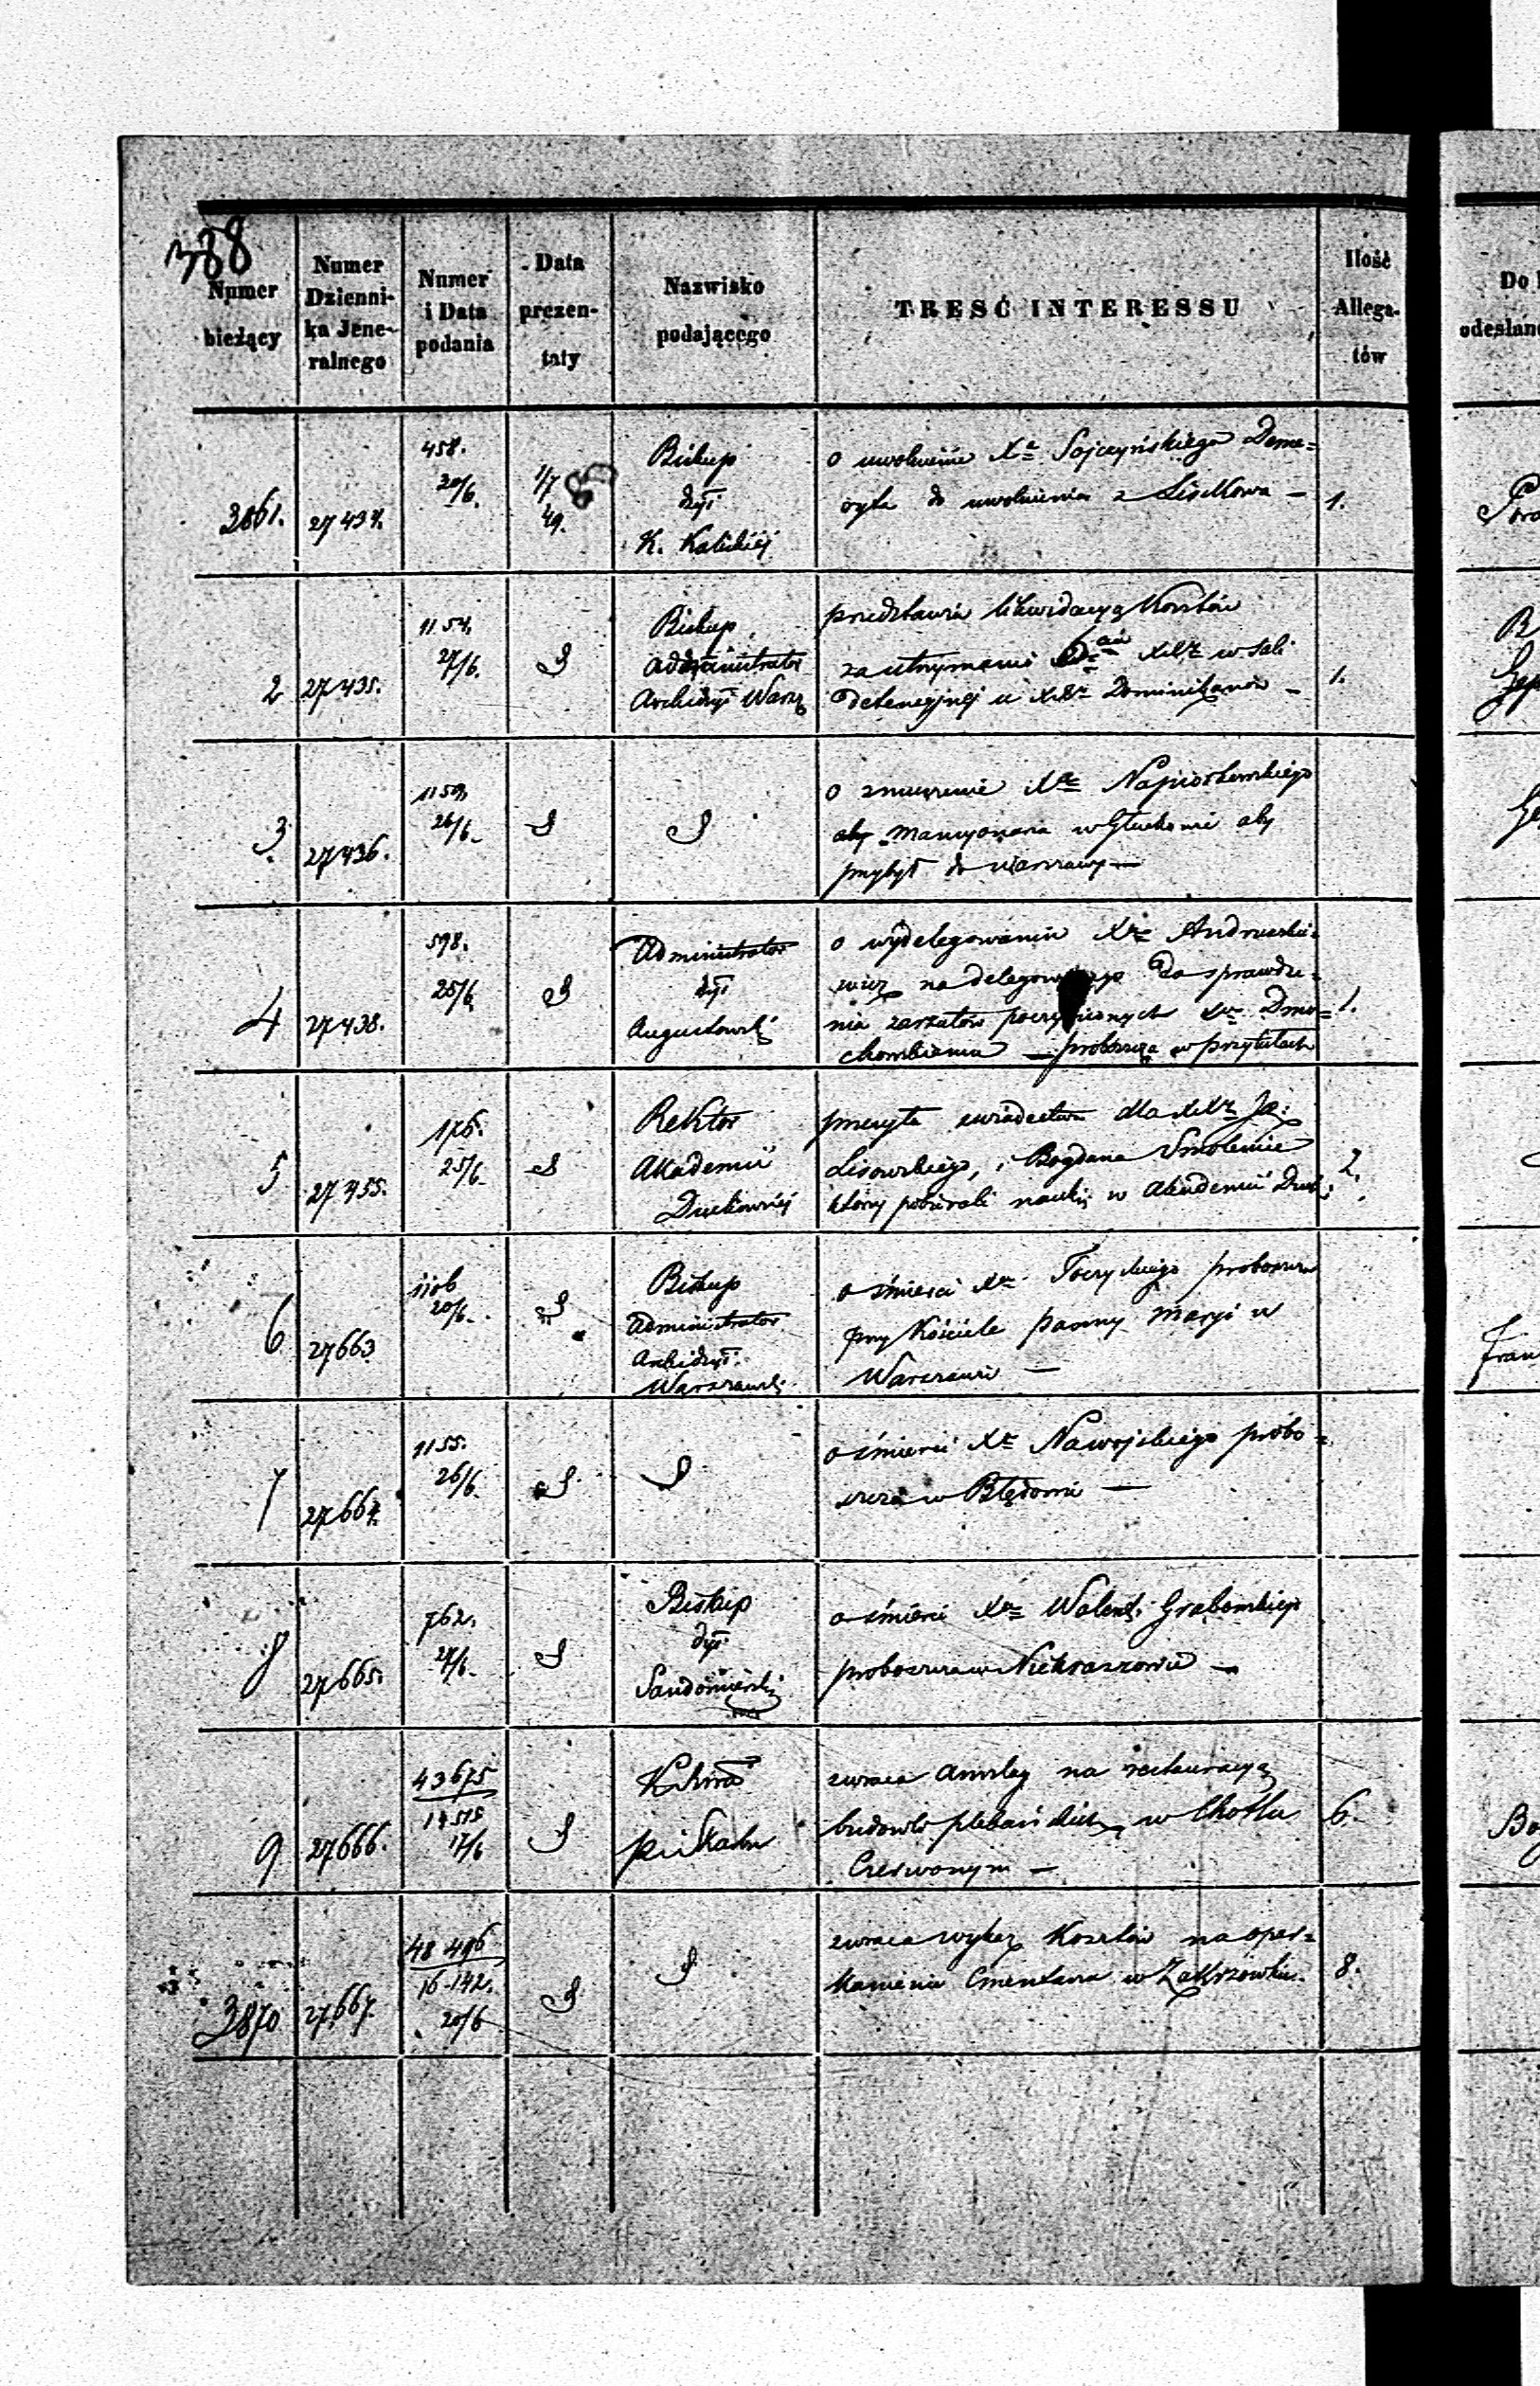 388
Numer bieżący
Numer Dzienni- ka Jene- ralnego
Numer i Data podania
Data prezen- taty
Nazwisko podającego
TRESĆ INTERESSU
Ilość Allega- tów
3861.
27434.
458.
20/6.
1/7
49.
Biskup
dyi
K. Kaliskiéj
o uwolnienie Xa Sojczyńskiego Deme=
ryta do uwolnienia z Liskowa —
1.
2
27435.
1154.
27/6.
Biskup
Administrator
Archidyi Warsz
przedstawia likwidacyą Kosztów
za utrzymanie XXzy w sali
detencyjnéj u XXzy Dominikanów —
1.
3.
27436.
1159.
26/6.
o Xa Napiorkowskiego
aby Mansyonarza w aby
przybył do Warszawy —
4
27438.
598.
25/6.
Administrator
dyi
Augustowski
o wydelegowanie Xa Andruszkie=
wicza na delegowanego do sprawdze=
nia zarzutów poczynionych Xu Dmo=
chowskiemu — proboszcza w Przytułach
1.
5
27455.
176.
25/6.
Rektor
Akademii
Duchownéj
przesyła swiadectwa dla XXzy
Lisowskiego, i Bogdana
którzy pobierali nauki w Akademii Duch:
2.
6
27663
1106
20/6.
Biskup
Administrator
Archidyi.
Warszawski
o śmierci Xa proboszcza
przy Kościele Panny Maryi w
Warszawie —
7
27664.
1155.
26/6.
o śmierci Xa Nawojskiego probo=
szcza w Błędowie —
8
27665.
762.
27/6.
Biskup
dyi.
Sandomierski
o śmierci Xa Walent. Grabowskiego
proboszcza w Niekraszowie —
9
27666.
43675
14515
17/6
zwraca anszlag na restauracyą
budowli plebańskich w Chotlu
Czerwonym —
6.
3870
27667.
48 496
16 142.
20/6
zwraca wykaz Kosztów na opar=
kanienie Cmentarza w Zakrzówku.
8.